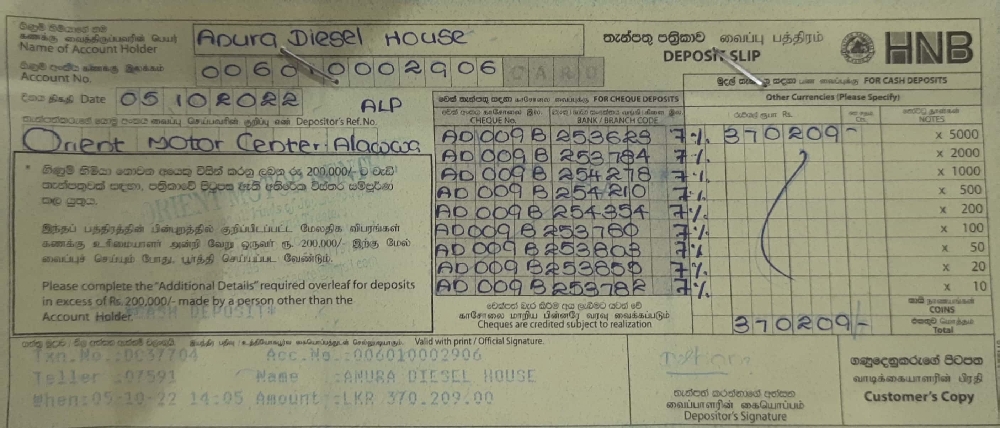 ගිණුම් හිමියාගේ නම
கணக்கு வைத்திருப்பவரின் பெயர்
Name of Account Holder
Anura Diesel House
තැන්පතු පත්‍රිකාව வைப்பு பத்திரம்
DEPOSIT SLIP
HNB
ගිණුම් අංකය கணக்கு இலக்கம்
Account No.
006010002906 CARD
දිනය திகதி Date 05 10 2022
ALP
Depositor's Ref No.
Orient Motor Center Alawwa
* ගිණුම් හිමියා නොවන අයෙකු විසින් කරනු ලබන රු 200,000/- ට වැඩි
තැන්පතුවක් සඳහා, පත්‍රිකාවේ පිටුපස ඇති අතිරේක විස්තර සම්පූර්ණ
කළ යුතුය.
இந்தப் பத்திரத்தின் பின்புறத்தில் குறிப்பிடப்பட்ட மேலதிக விபரங்கள்
கணக்கு உரிமையாளர் அன்றி வேறு ஒருவர் ரூ. 200,000/- இற்கு மேல்
வைப்புச் செய்யும் போது, பூர்த்தி செய்யப்பட வேண்டும்.
Please complete the "Additional Details" required overleaf for deposits
in excess of Rs. 200,000/- made by a person other than the
Account Holder.
*CASH DEPOSIT*
චෙක් තැන්පතු සඳහා காசோலை வைப்புக்கு FOR CHEQUE DEPOSITS
CHEQUE No. BANK / BRANCH CODE
AD 009 B 253623 7%
AD 009 B 253784 7%
AD 009 B 254278 7%
AD 009 B 254210 7%
AD 009 B 254354 7%
AD 009 B 253760 7%
AD 009 B 253803 7%
AD 009 B 253859 7%
AD 009 B 253782 7%
චෙක්පත් මාරු කිරීම අය ලැබීමට යටත් වේ
காசோலை மாறிய பின்னரே வரவு வைக்கப்படும்
Cheques are credited subject to realization
මුදල් තැන්පතු සඳහා பண வைப்புக்கு FOR CASH DEPOSITS
Other Currencies (Please Specify)
රුපියල් ரூபா Rs.
Cts.
NOTES
370209- x 5000
x 2000
x 1000
x 500
x 200
x 100
x 50
x 20
x 10
COINS
370209/- Total
Valid with print / Official Signature.
Txn.No.:DC37704 Acc.No.:006010002906
Teller :07591 Name :ANURA DIESEL HOUSE
When:05-10-22 14:05 Amount :LKR 370,209.00
තැන්පත් කරන්නාගේ අත්සන
வைப்பாளரின் கையொப்பம்
Depositor's Signature
ගනුදෙනුකරුගේ පිටපත
வாடிக்கையாளரின் பிரதி
Customer's Copy